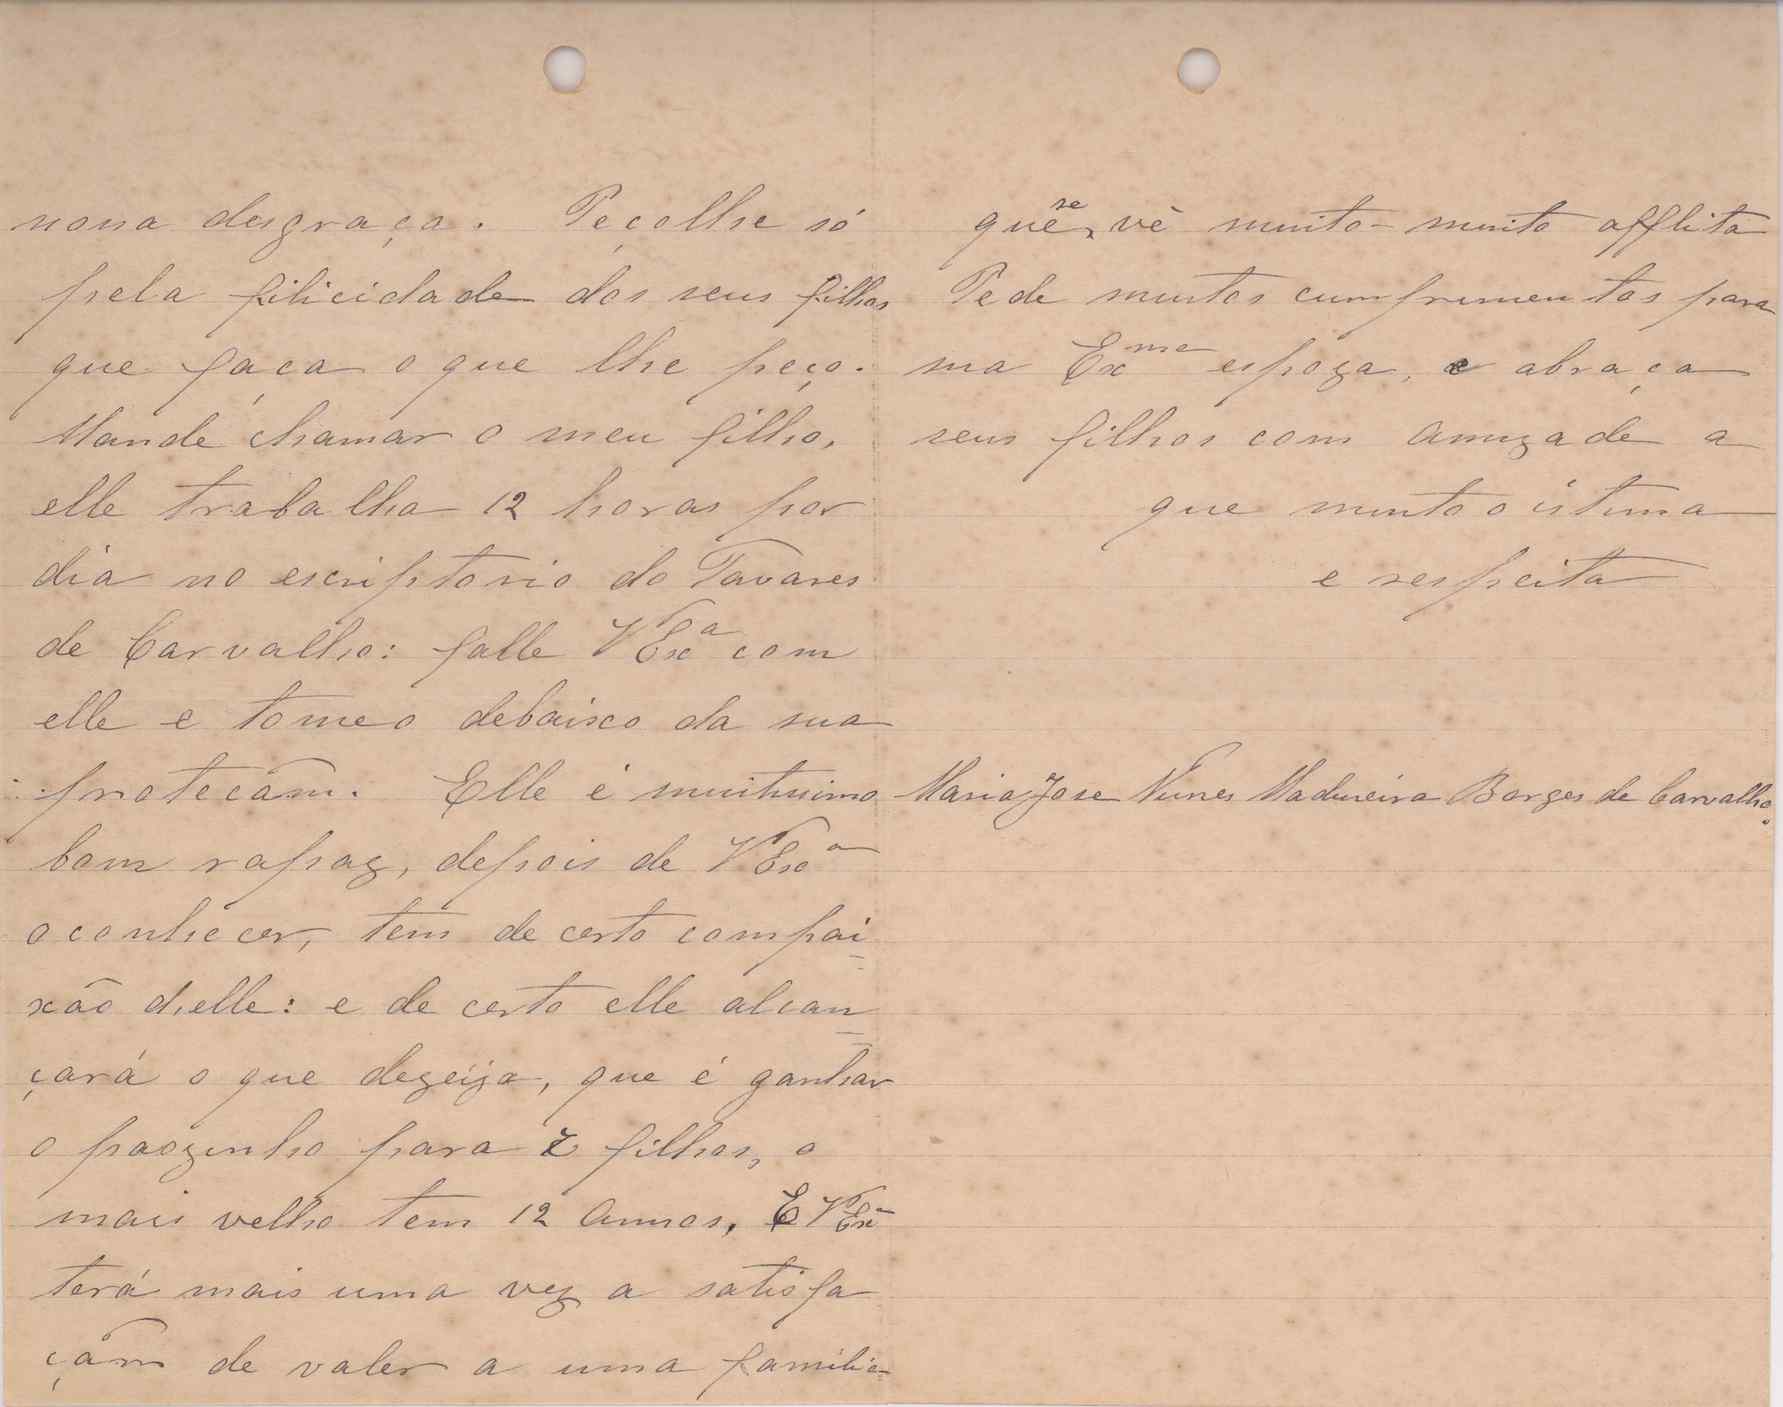 nossa desgraça. Peçolhe só
pela filicidade dos seus filhos
que faça o que lhe peço.
Mande chamar o meu filho,
elle trabalha 12 horas por
dia no escriptorio do Tavares
de Carvalho: falle VExª com
elle e tomeo debaixo da sua
protecâm. Elle é muitissimo
bom rapaz, depois de VExª
o conhecer, tem de certo compai
xão d'elle: e de certo elle alcan
çará o que dezeija, que é ganhar
o paozinho para 7 filhos, o
mais velho tem 12 annos. E VExª
terá mais uma vez a satisfa
çâm de valer a uma familia
que se vê muito-muito afflita
Pede muitos cumprimentos para
sua Exma espoza, e abraça
seus filhos com amizade a
que muito o istima
e respeita
Maria Jose Nunes Madureira Borges de Carvalho.